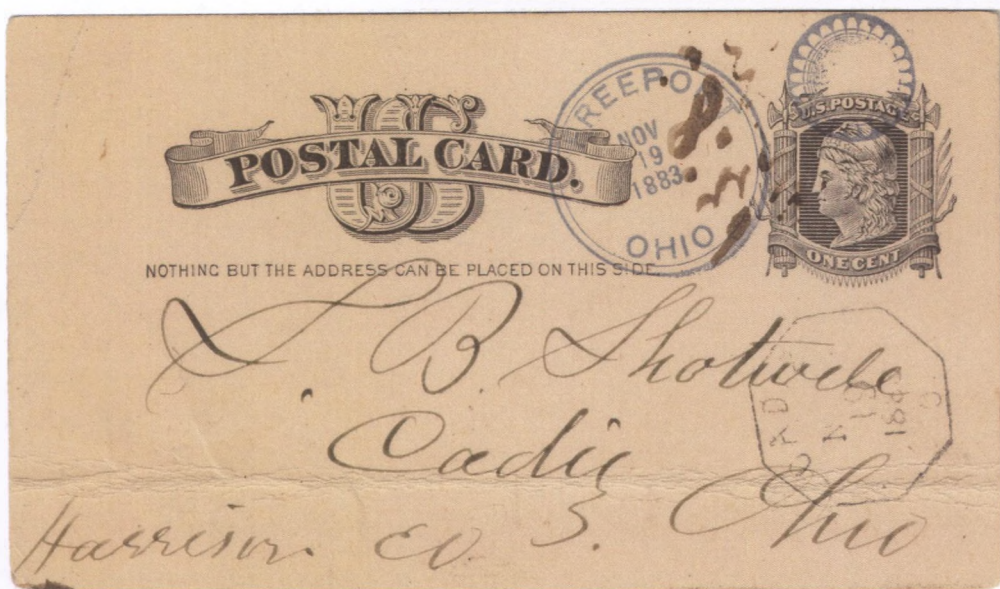 US
POSTAL CARD.
NOTHING BUT THE ADDRESS CAN BE PLACED ON THIS SIDE.
FREEPORT
NOV
19
1883
OHIO
U.S. POSTAGE
ONE CENT
S. B. Shotwell
Cadiz
Ohio
Harrison Co